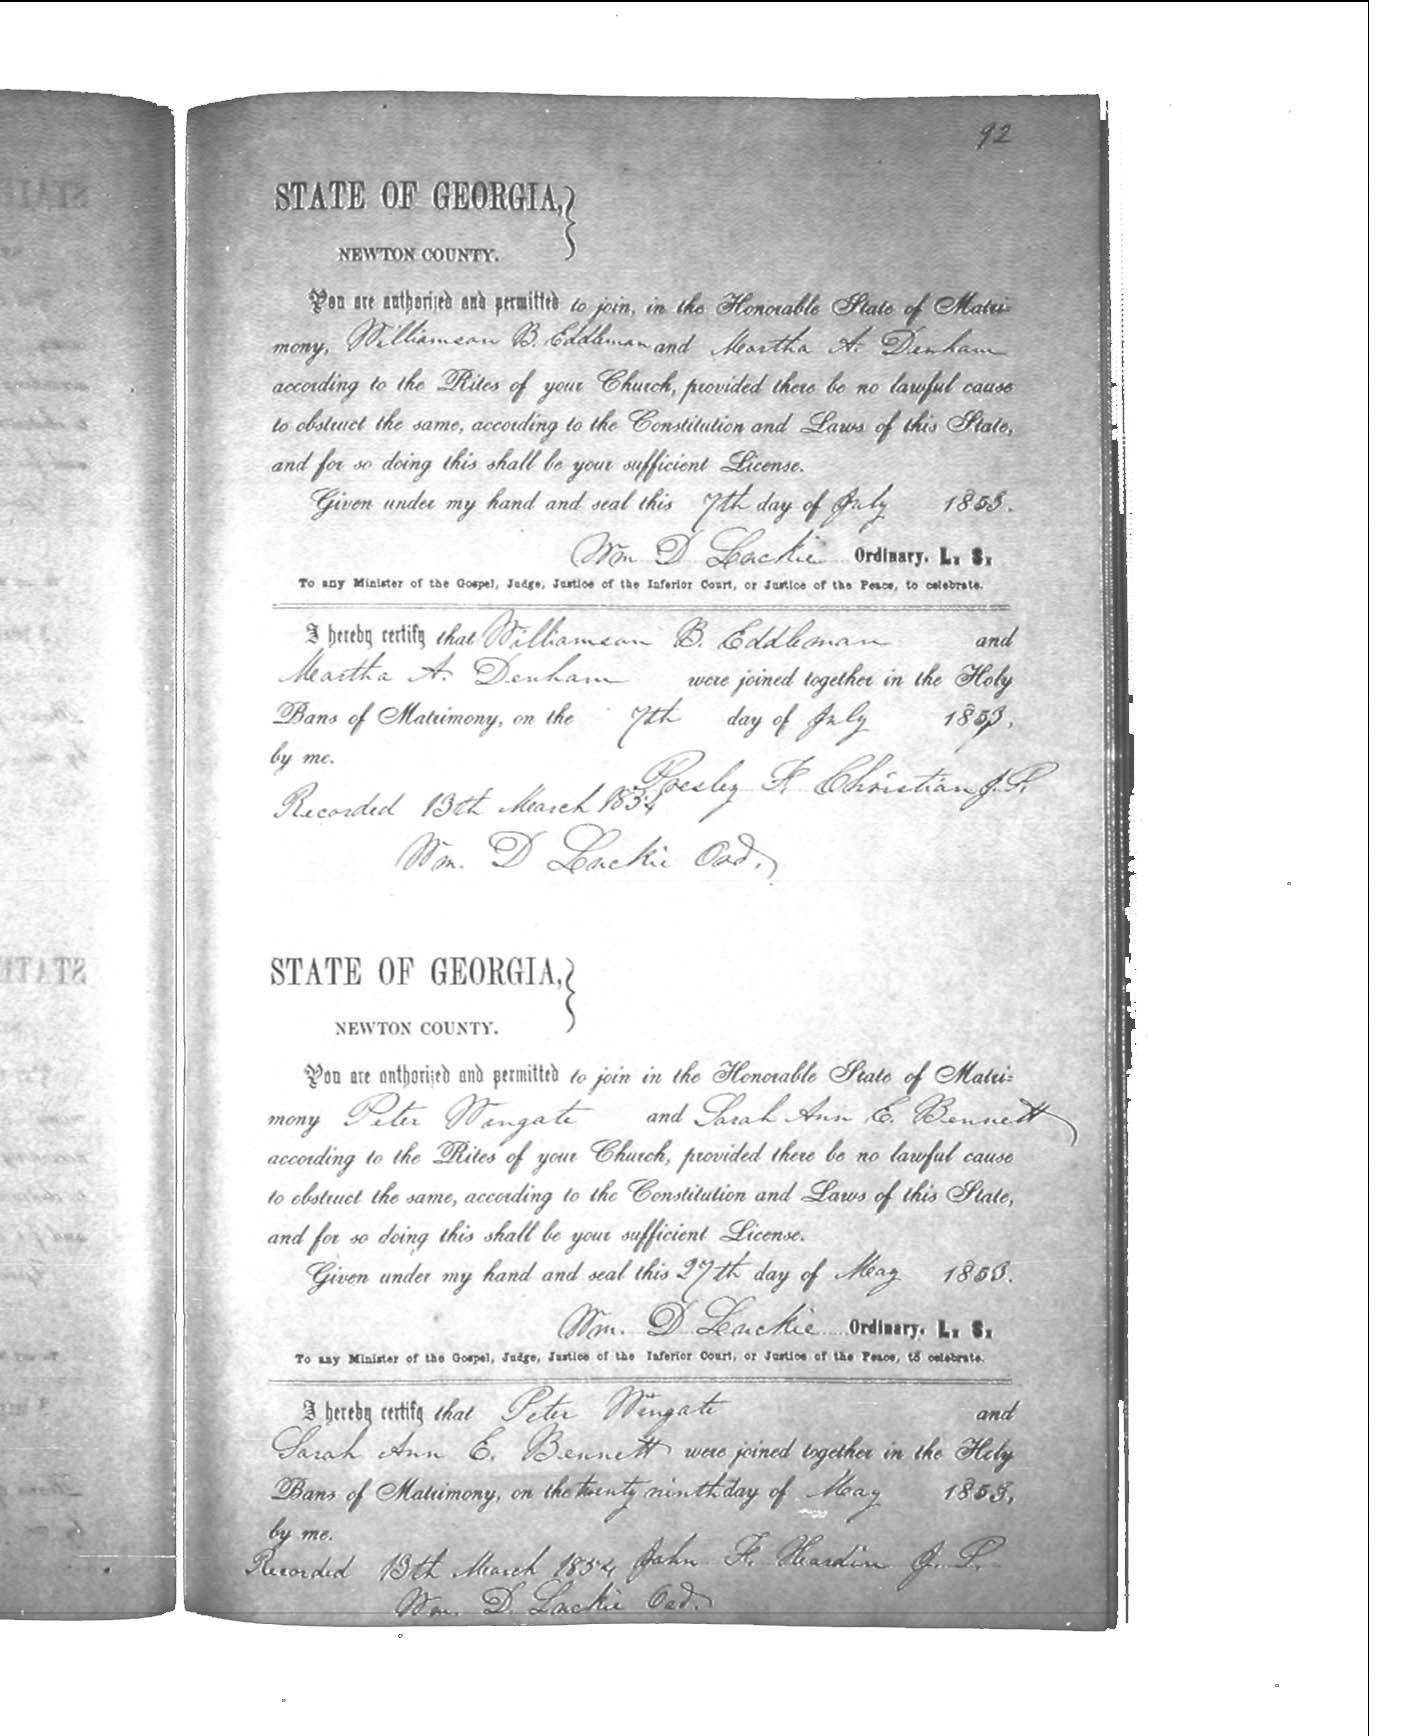 92
STATE OF GEORGIA,
NEWTON COUNTY.
You are authorized and permitted to join, in the Honorable State of Matri-
mony, Williamson B. Eddleman and Martha A. Denham
according to the Rites of your Church, provided there be no lawful cause
to obstruct the same, according to the Constitution and Laws of this State,
and for so doing this shall be your sufficient License.
Given under my hand and seal this 7th day of July 1853.
Wm D Luckie Ordinary. L. S.
To any Minister of the Gospel, Judge, Justice of the Inferior Court, or Justice of the Peace, to celebrate.
I hereby certify that Williamson B. Eddleman and
Martha A. Denham were joined together in the Holy
Bans of Matrimony, on the 7th day of July 1853,
by me.
Presley F. Christian J.P.
Recorded 13th March 1854
Wm. D Luckie Ord.
STATE OF GEORGIA,
NEWTON COUNTY.
You are authorized and permitted to join in the Honorable State of Matri-
mony Peter Wingate and Sarah Ann E. Bennett
according to the Rites of your Church, provided there be no lawful cause
to obstruct the same, according to the Constitution and Laws of this State,
and for so doing this shall be your sufficient License.
Given under my hand and seal this 27th day of May 1853.
Wm. D Luckie Ordinary. L. S.
To any Minister of the Gospel, Judge, Justice of the Inferior Court, or Justice of the Peace, to celebrate.
I hereby certify that Peter Wingate and
Sarah Ann E. Bennett were joined together in the Holy
Bans of Matrimony, on the twenty ninth day of May 1853,
by me.
Recorded 13th March 1854 John F. Hardin J. P.
Wm. D. Luckie Ord.